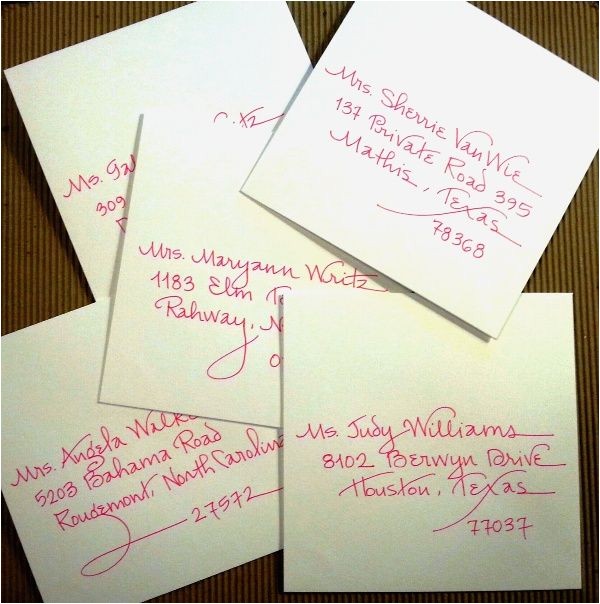 Ms.
309
Mrs. Sherrie VanWie
137 Private Road 395
Mathis, Texas
78368
Mrs. Maryann Writz
1183 Elm
Rahway,
Mrs. Angela
5203 Bahama Road
Roudemont, North Carolina
27572
Ms. Judy Williams
8102 Berwyn Drive
Houston, Texas
77037